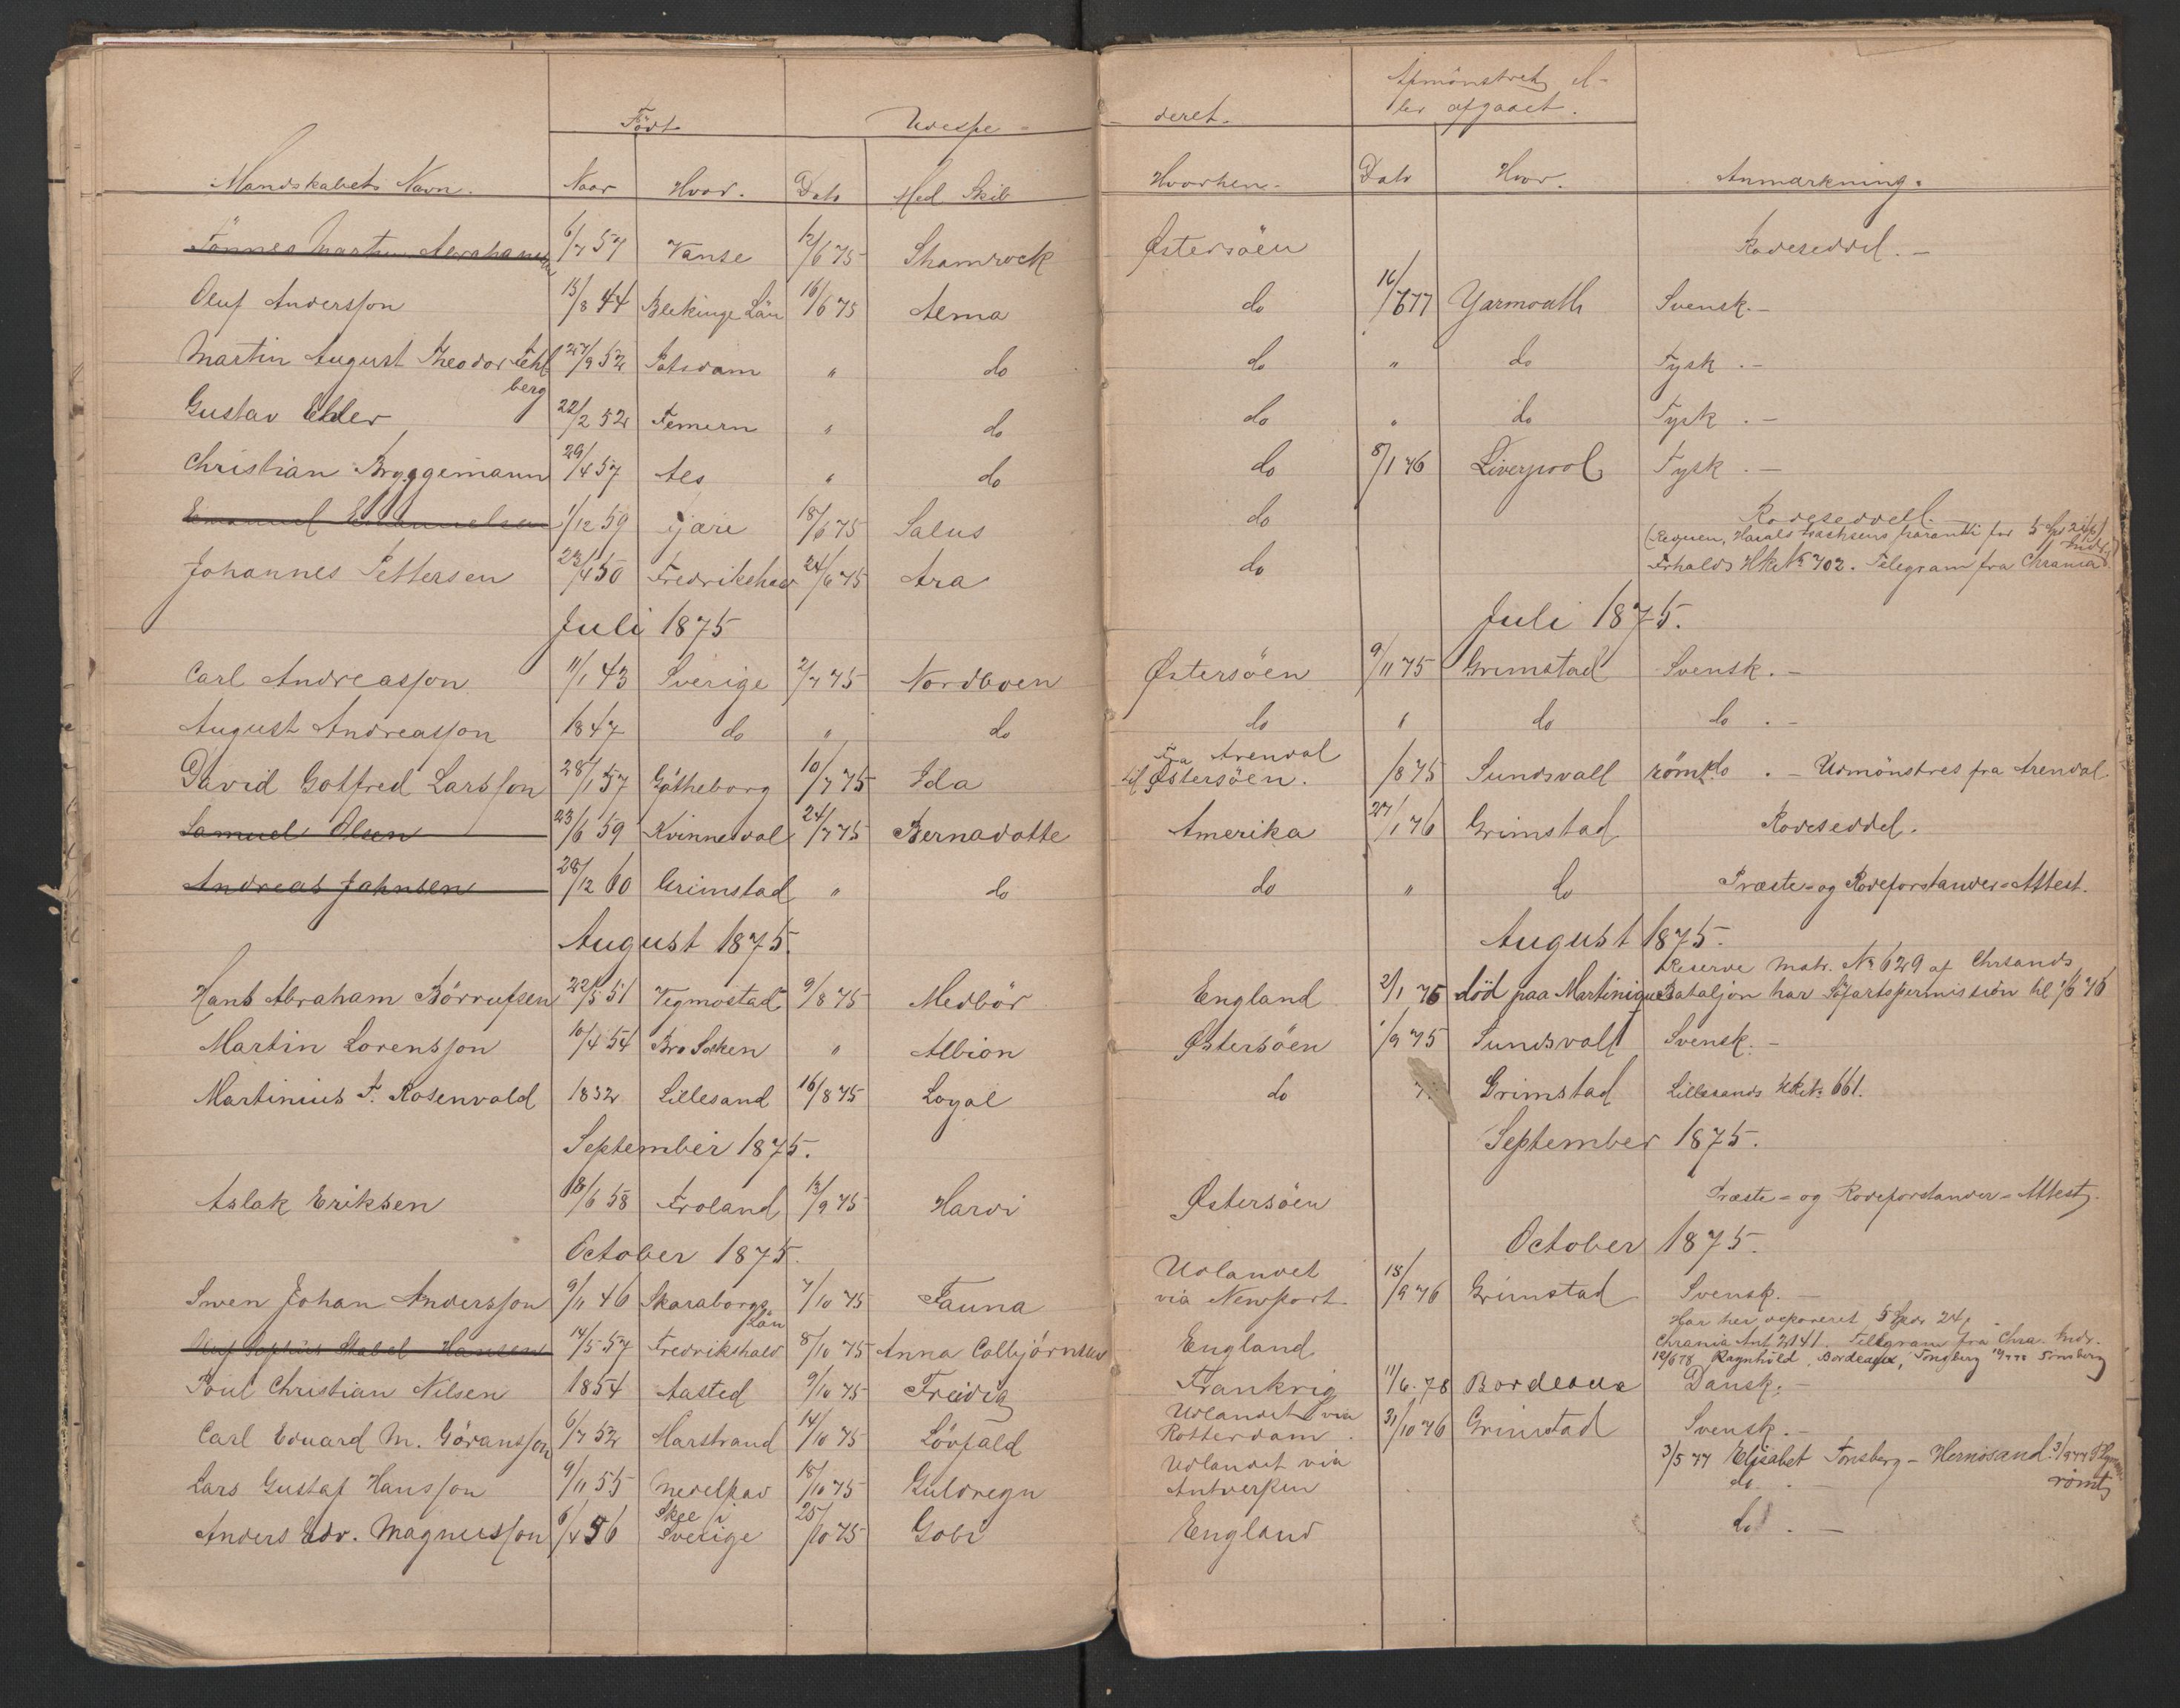 Født Udexpe- deret. Afmönstret el-
ler afgaaet.
Mandskabets Navn. Naar Hvor. Dato Med Skib Hvorhen. Dato Hvor. Anmærkning.
Tönnes Martin Abrahamsen 6/7 57 Vanse 12/6 75 Shamrock Østersöen Rodeseddel. -
Oluf Andersson 15/8 44 Blekinge Län 16/6 75 Alma do 16/6 77 Yarmouth Svensk. -
Martin August Theodor Fehl
berg 27/9 52 Potsdam " do do " do Tysk. -
Gustav Ehler 22/2 52 Femern " do do " do Tysk. -
Christian Bryggemann 29/4 57 Als " do do 8/1 76 Liverpool Tysk. -
Emanuel Emanuelsen 1/12 59 Fjære 18/6 75 Salus do Rodeseddel.
Johannes Pettersen 23/4 50 Fredrikshald 24/6 75 Ara do Frhalds HkNo 702. Telegram fra Chrania
Juli 1875 Juli 1875.
Carl Andreasson 11/1 43 Sverige 2/7 75 Nordboen Østersöen 9/11 75 Grimstad Svensk. -
August Andreasson 1847 do " do do " do do. -
David Gotfred Larsson 28/1 57 Götheborg 10/7 75 Ida Fra Arendal
til Østersöen. /8 75 Sundsvall römt. do. - Udmönstres fra Arendal
Samuel Olsen 23/6 59 Kvinnesdal 24/7 75 Bernadotte Amerika 27/1 76 Grimstad Rodeseddel.
Andreas Jahnsen 28/12 60 Grimstad " do do " do Præste- og Rodeforstander-Attest.
August 1875. August 1875.
Reserve Matr. No 629 af Chrsands
Hans Abraham Börrufsen 22/5 51 Vegmostad 9/8 75 Medbör England 2/1 76 död paa Martinique Bataljon har Söfartspermission til 1/6 76
Martin Lorensson 10/4 54 Bro Socken " Albion Østersöen 1/9 75 Sundsvall Svensk. -
Martinius F. Rosenvald 1832 Lillesand 16/8 75 Loyal do Grimstad Lillesands HkNo 661.
September 1875. September 1875.
Aslak Eriksen 18/6 58 Froland 13/9 75 Hardi Østersöen Præste- og Rodeforstander-Attest.
October 1875. October 1875.
Swen Johan Andersson 9/11 46 Skaraborgs
Län 7/10 75 Fauna Udlandet
via Newport. 15/9 76 Grimstad Svensk. -
Har her deponeret 5 Spdr 24
Oluf Sophus Stabel Hansen 14/5 57 Fredrikshald 8/10 75 Anna Colbjörnsen England Chrania Ant 2141. Telegram fra Chra. Indr.
12/6 78 Ragnhild, Bordeaux, Tönsberg
Poul Christian Nilsen 1854 Aasted 9/10 75 Freidig Frankrig 11/6. 78 Bordeaux Dansk. -
Carl Eduard M. Göransson 6/7 52 Marstrand 14/10 75 Lövfald Udlandet via
Rotterdam. 31/10 76 Grimstad Svensk. -
3/5 77 Elisabet Tönsberg - Hernösand.
Lars Gustaf Hansson 9/11 55 Medelpad 18/10 75 Guldregn Udlandet via
Antwerpen do. - römt
Anders Edv. Magnusson 6/4 56 Skee i
Sverige 25/10 75 Gobi England do. -